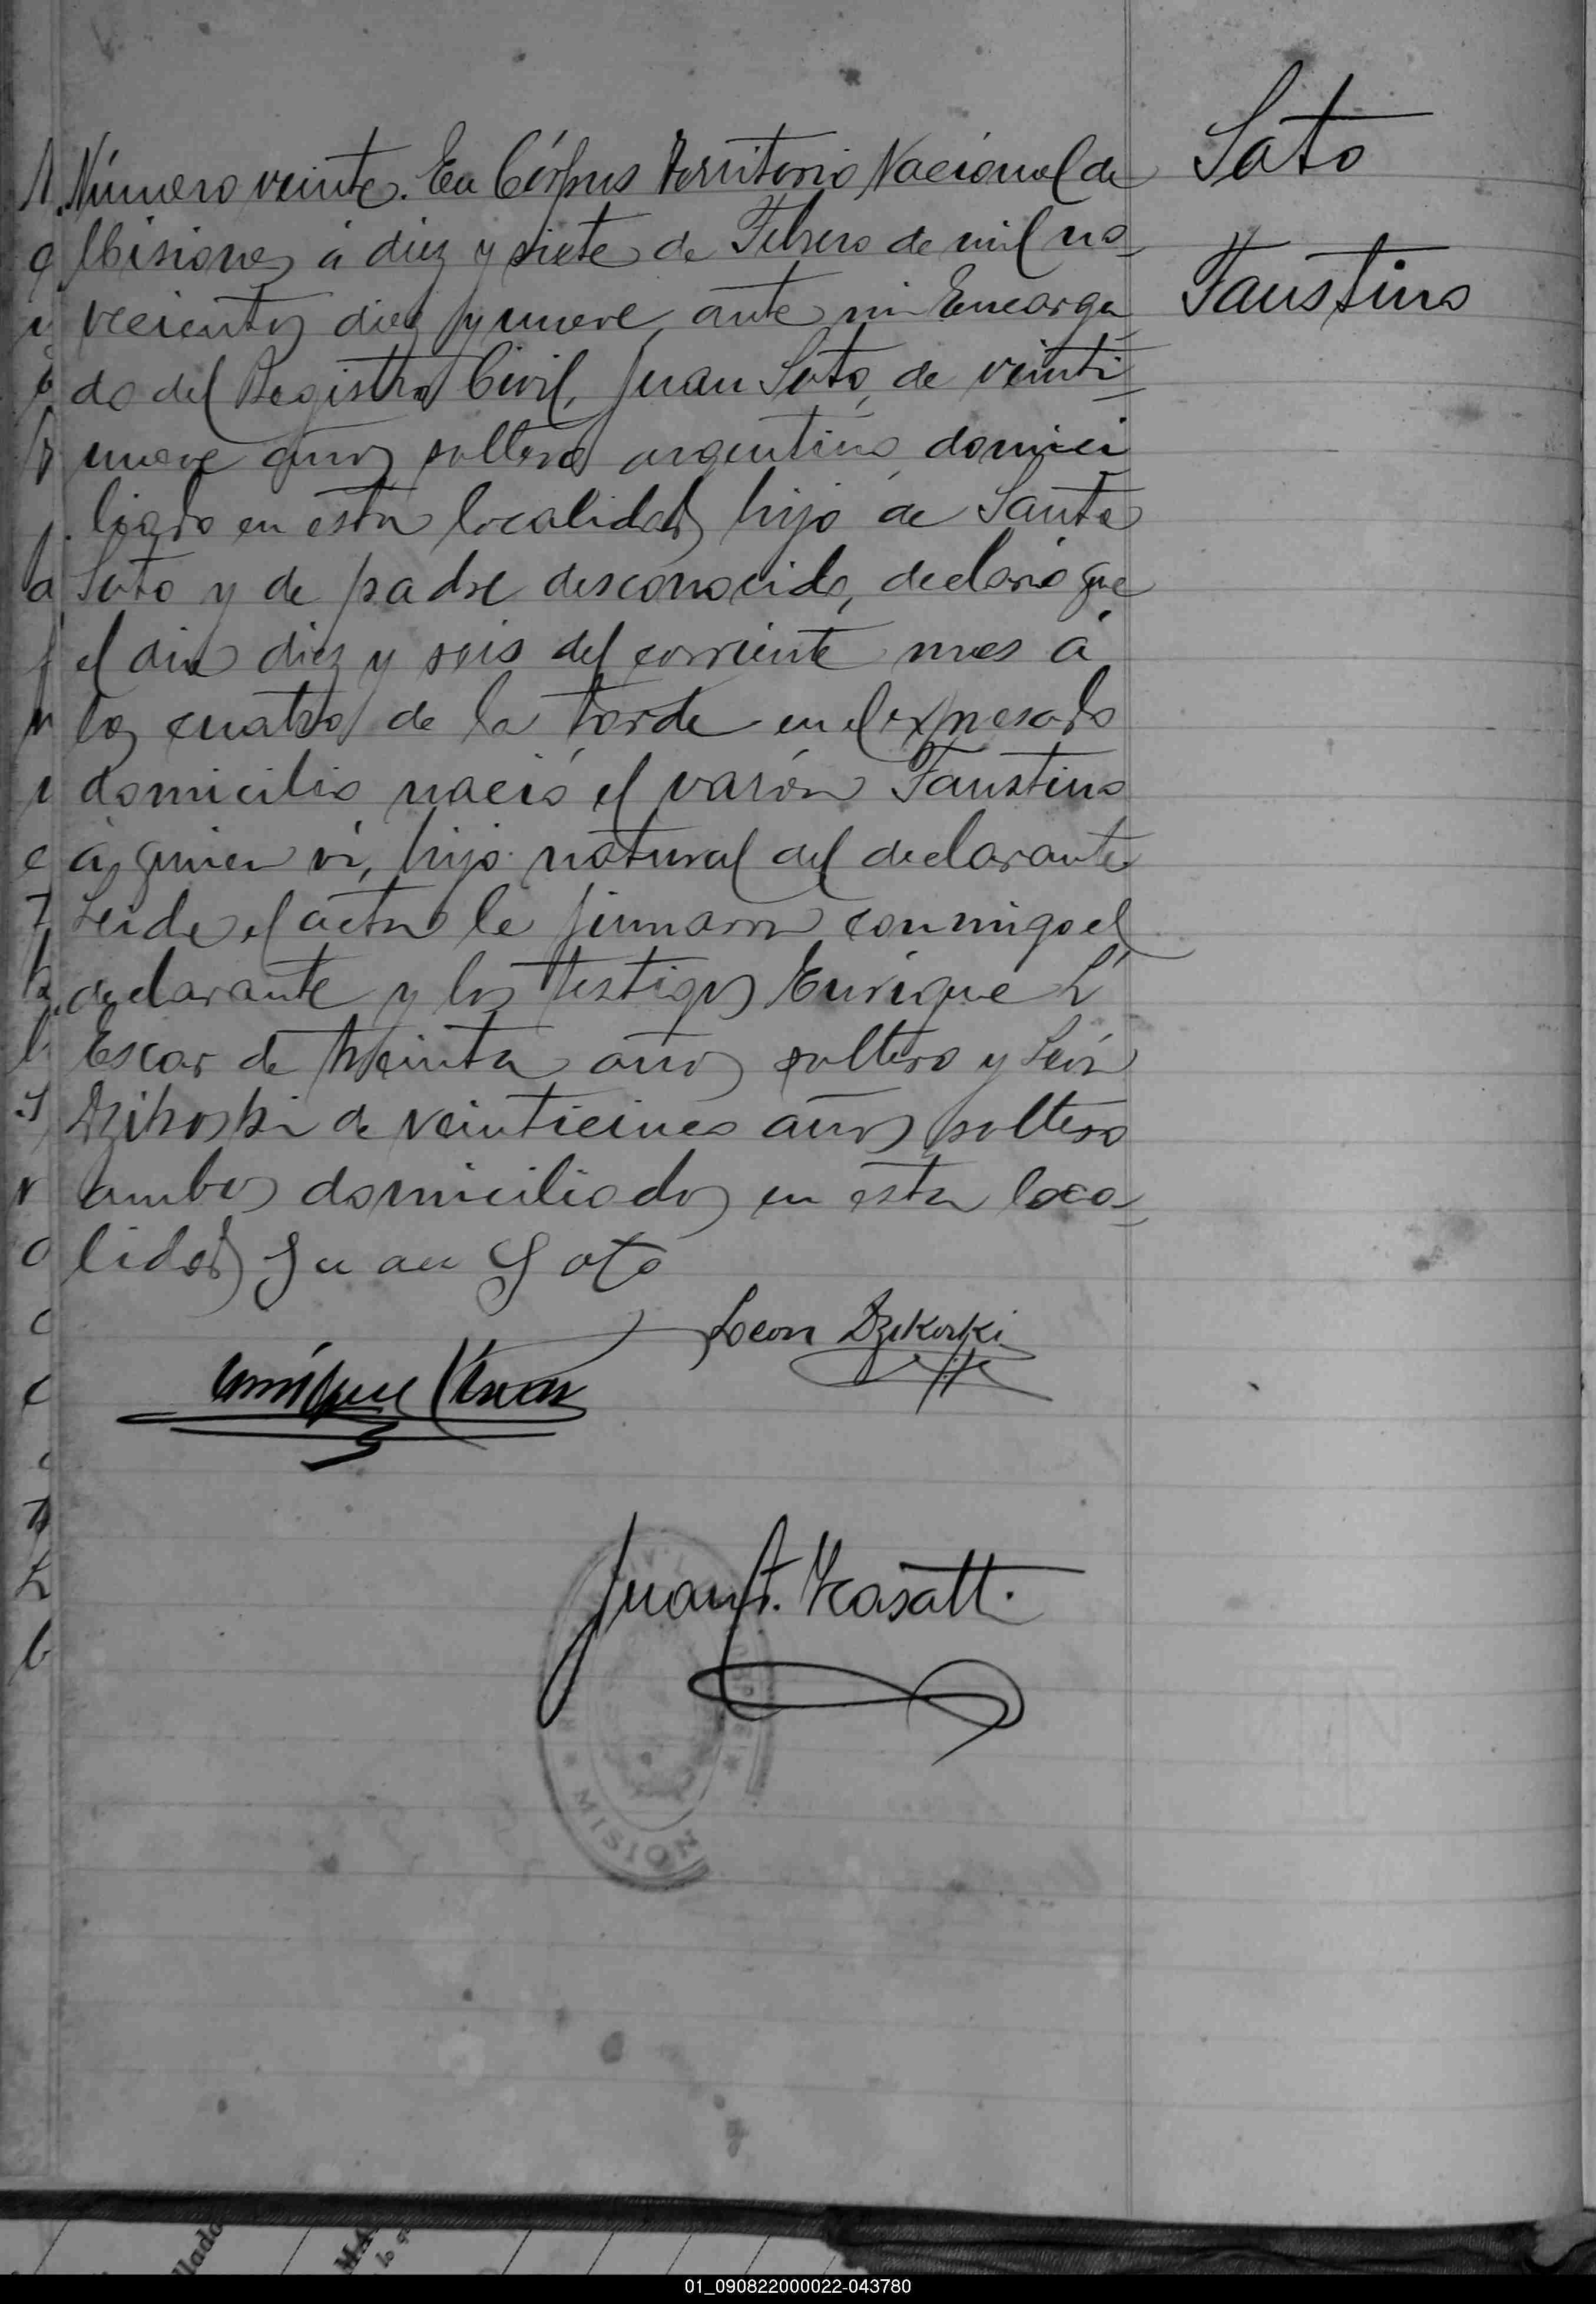 Soto
Faustino
Número veinte. En Córpus Territorio Nacional de
Misiones á diez y siete de Febrero de mil no=
vecientos diez y nueve, ante mi Encarga
do del Registro Civil, Juan Soto, de veinti=
nueve años soltero argentino domici
liado en esta localidad hijo de Santa
Soto y de padre desconocido, declaró que
el dia diez y seis del corriente mes á
las cuatro de la tarde en el expresado
domicilio nació el varón Faustino
á quien vi, hijo natural del declarante
Leida el acta la firmaron conmigo el
declarante y los testigos Enrique L
Escar de treinta años soltero y León
Dzikoski de veinticinco años soltero
ambos domiciliados en esta loca=
lidad Juan Soto
Leon Dzikoski
Enrique Escar
Juan
MISION
01_090822000022-043780